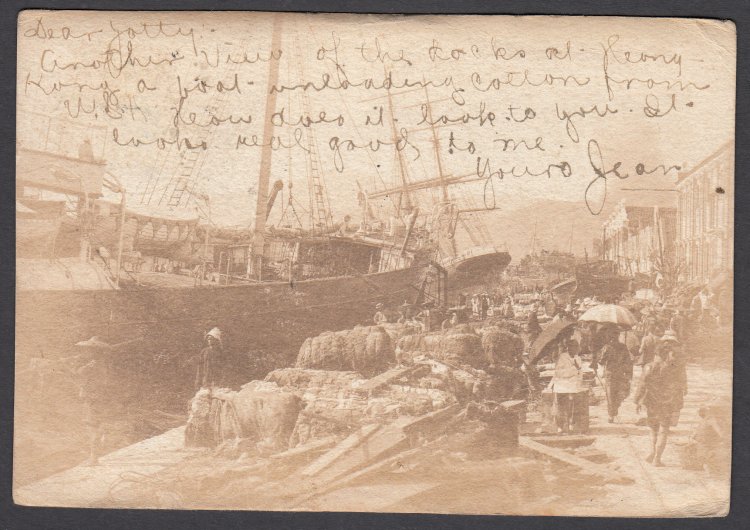 Dear Totty:-
Another View of the docks at Hong
Kong a boat unloading cotton from
U.S.A. How does it look to you. It
looks real good to me.
Yours Jean